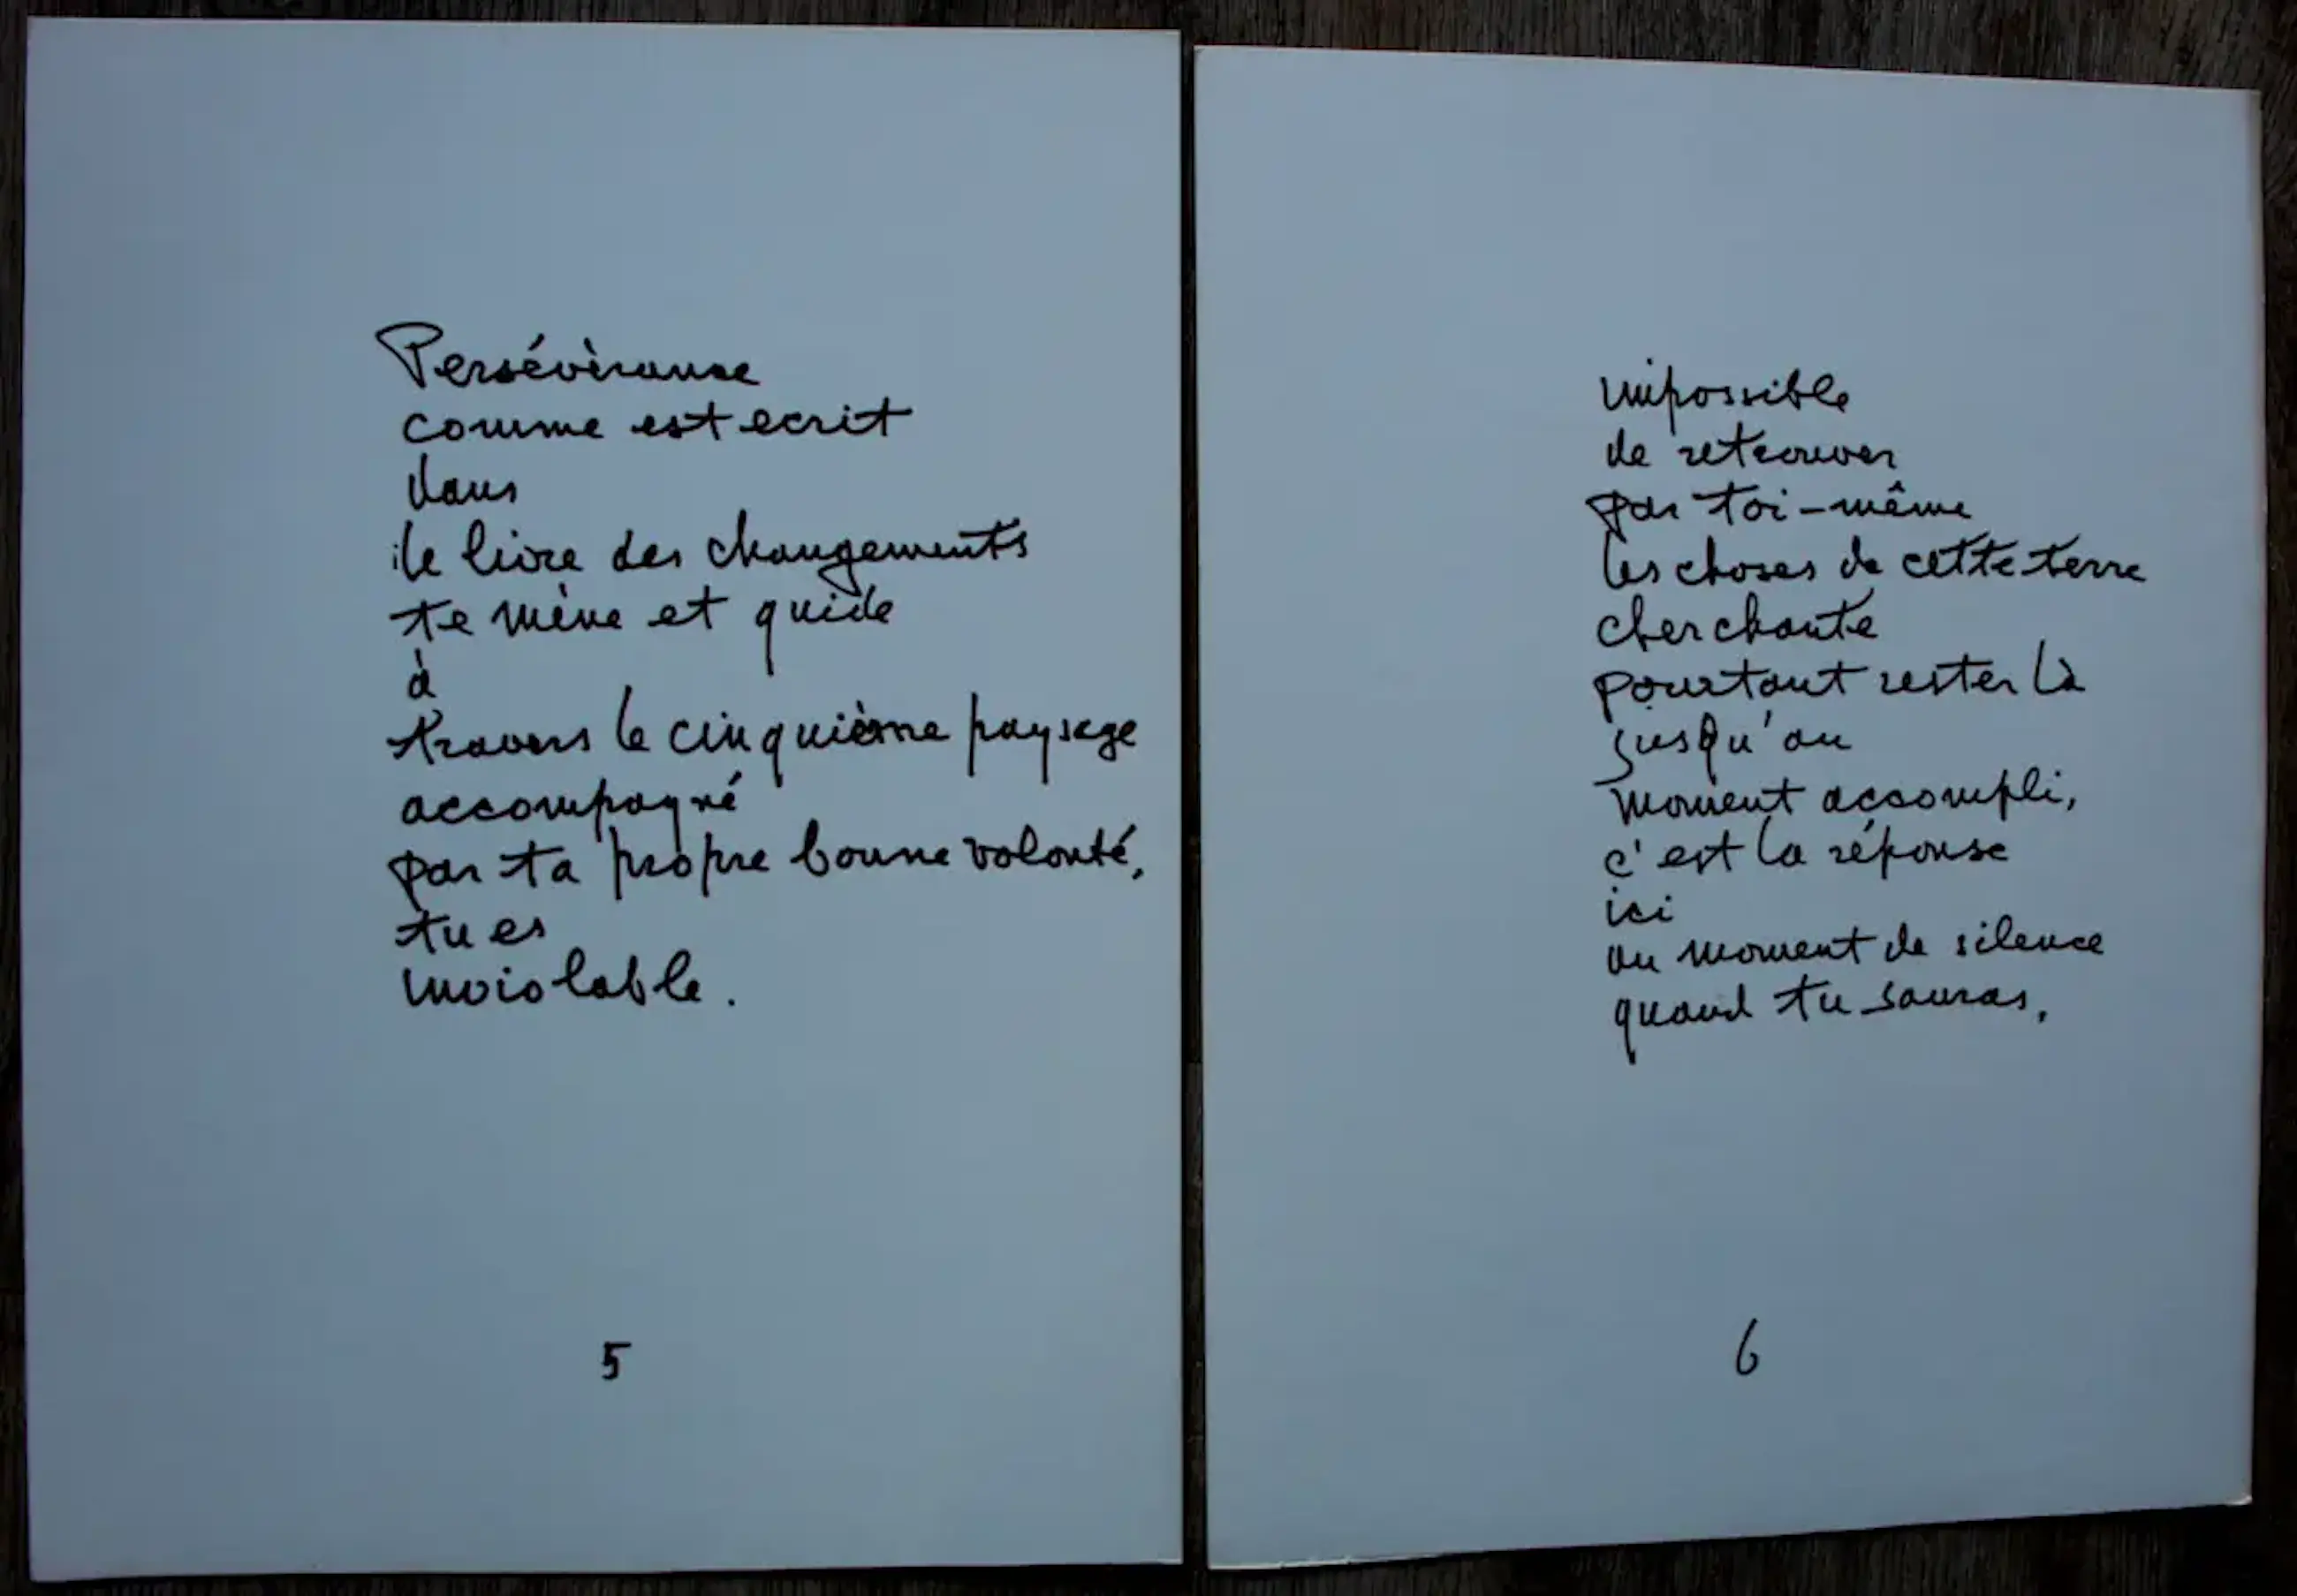 Persévèrance
comme est ecrit
dans
le livre des changements
te mène et guide
à
travers le cinquième paysage
accompagné
par ta propre bonne volonté,
tu es
inviolable.
5
impossible
de retrouver
par toi-même
les choses de cette terre
cherchante
pourtant rester là
jusqu'au
moment accompli,
c'est la réponse
ici
au moment de silence
quand tu sauras.
6